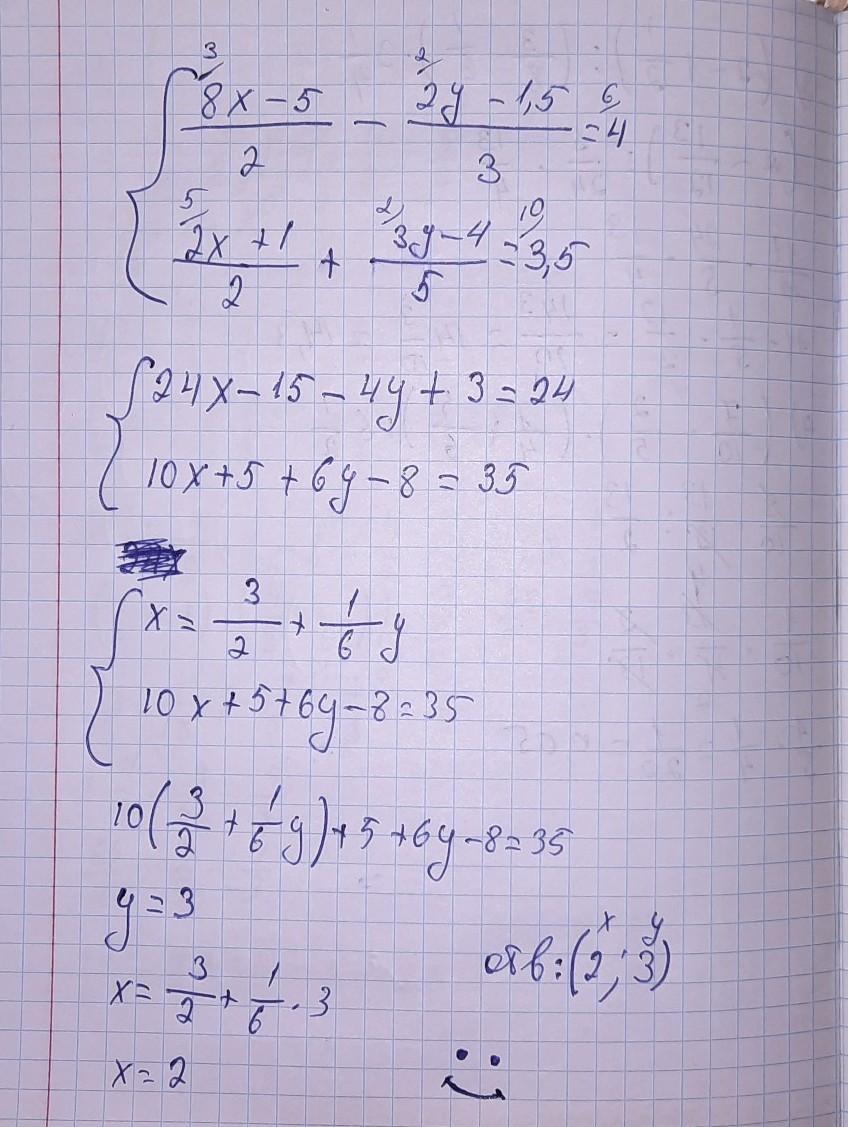 3/ 2/ 6/
(8x-5)/2 - (2y-1,5)/3 = 4
5/ 2/ 10/
(2x+1)/2 + (3y-4)/5 = 3,5
24x-15-4y+3=24
10x+5+6y-8=35
x = 3/2 + 1/6 y
10x+5+6y-8=35
10(3/2 + 1/6 y)+5+6y-8=35
y=3
x = 3/2 + 1/6 · 3
x=2
x y
отв: (2; 3)